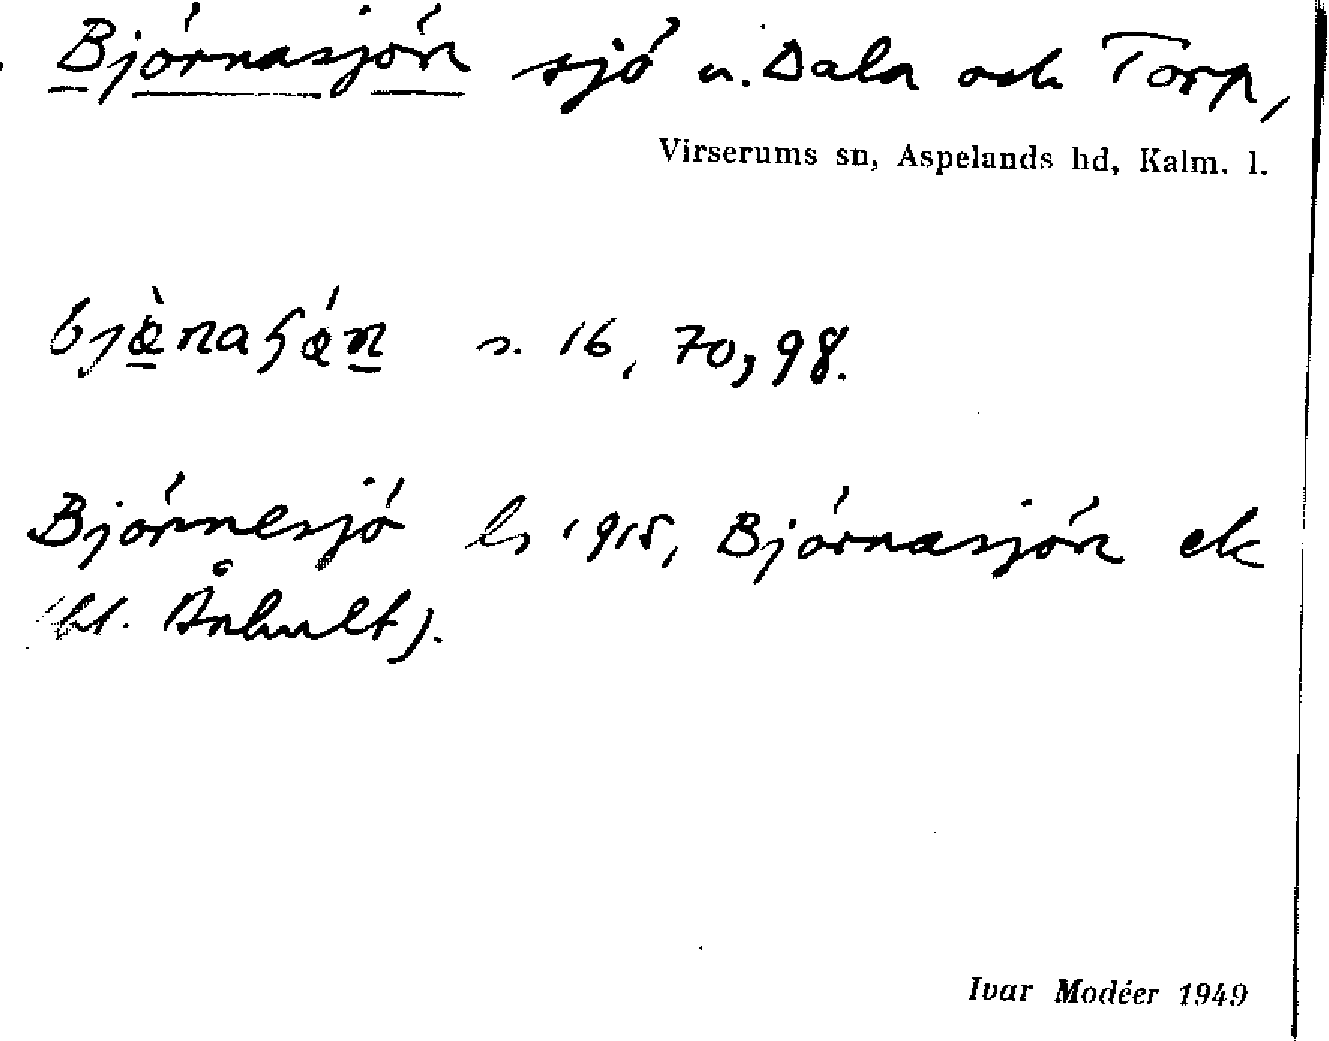 Björnasjön sjö u. Dala och Torp,
Virserums sn, Aspelands hd, Kalm. l.
s. 16, 70, 98.
Björnesjö ls 1915, Björnasjön ek
bl. Århult).
Ivar Modéer 1949